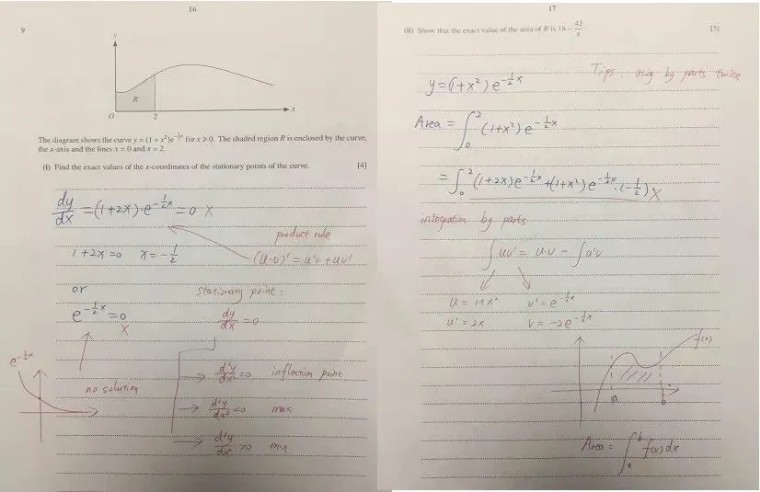 16
9
y
R
O
2
x
The diagram shows the curve y = (1 + x²)e^{-½x} for x ⩾ 0. The shaded region R is enclosed by the curve,
the x-axis and the lines x = 0 and x = 2.
(i) Find the exact values of the x-coordinates of the stationary points of the curve. [4]
dy/dx = (1+2x)·e^{-½x} = 0 X
product rule
1+2x=0 x=-½
(u·v)' = u'v + uv'
or
stationary point:
e^{-½x} = 0
X
dy/dx = 0
e^{-½x}
no solution
→ d²y/dx² = 0 inflection point
→ d²y/dx² < 0 max
→ d²y/dx² > 0 min
17
(ii) Show that the exact value of the area of R is 18 − 42/e. [5]
Tips: by parts twice
y = (1+x²) e^{-½x}
Area = ∫₀² (1+x²) e^{-½x}
= ∫₀² (1+2x)e^{-½x} + (1+x²)e^{-½x}·(-½) X
integration by parts
∫uv' = u·v − ∫u'v
u = 1+x² v' = e^{-½x}
u' = 2x v = -2e^{-½x}
f(x)
a
b
Area = ∫ f(x) dx